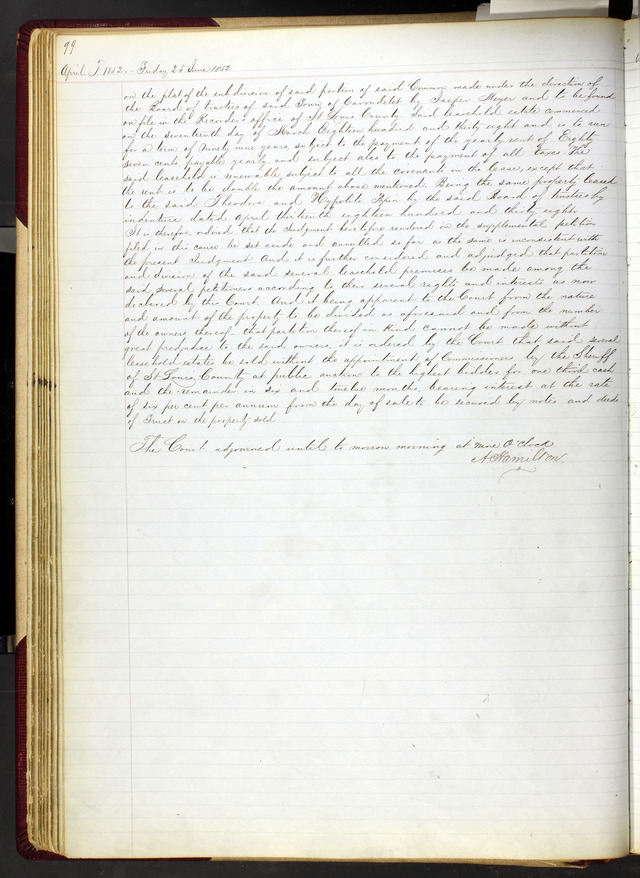 99
April T. 1852. - Friday 25 June 1852
on the plat of the subdivision of said portion of said Common made under the direction of
the Board of trustees of said Town of Carondelet by Jasper Meyer and to be found
on file in the Recorders office of St Louis County Said leasehold estate commenced
on the seventeenth day of March Eighteen hundred and thirty eight and is to run
for a term of Ninety nine years, subject to the payment of the yearly rent of Eighty
seven cents payable yearly and subject also to the payment of all taxes The
said leasehold is renewable subject to all the covenants in the lease, except that
the rent is to be double the amount above mentioned. Being the same property leased
to the said Theodore and Hyppolite Pepin by the said Board of trustees by
indenture dated April thirteenth eighteen hundred and thirty eight
It is therefore ordered that the Judgment heretofore rendered on the supplemental petition
filed in this cause be set aside and annulled so far as the same is inconsistent with
the present Judgment And it is further considered and adjudged that partition
and division of the said several leasehold premises be made among the
said several petitioners according to their several rights and interests as now
declared by this Court And it being apparent to the Court from the nature
and amount of the property to be divided as aforesaid and from the number
of the owners thereof that partition thereof in kind cannot be made without
great predjudice to the said owners, it is ordered by the Court that said several
leasehold estates be sold without the appointment of Commissioners by the Sheriff
of St Louis County at public auction to the highest bidder for one third cash
and the remainder in six and twelve months, bearing interest at the rate
of six per cent per annum from the day of sale to be secured by notes and deeds
of Trust on the property sold.
The Court adjourned until to morrow morning at nine O'Clock
A Hamilton.